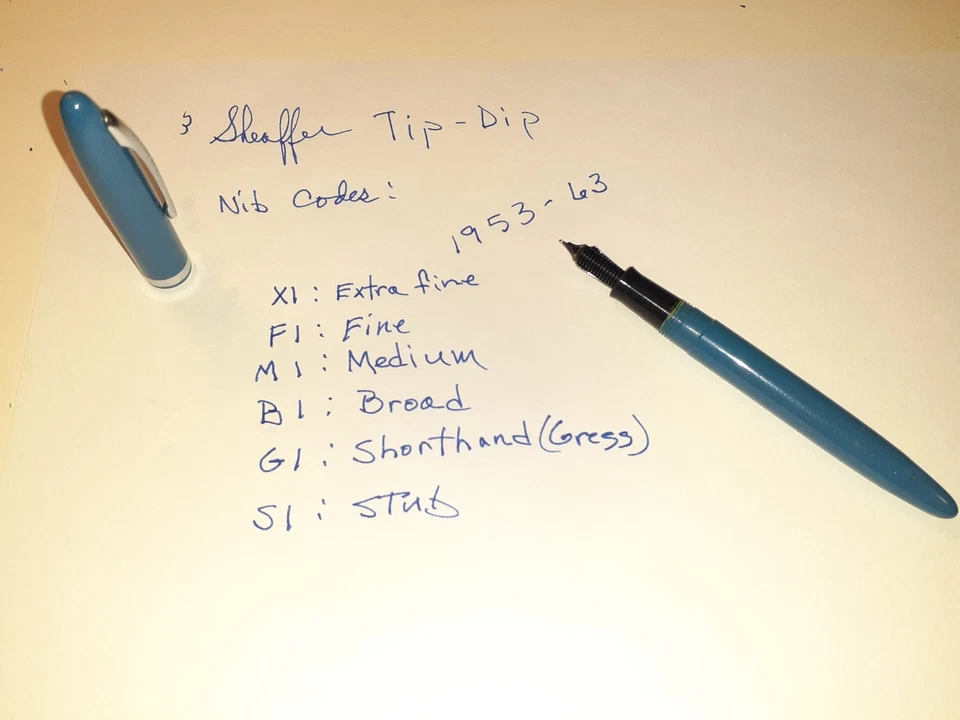 Sheaffer Tip-Dip
Nib Codes:
1953-63
X1: Extra fine
F1: Fine
M1: Medium
B1: Broad
G1: Shorthand (Gregg)
S1: STub